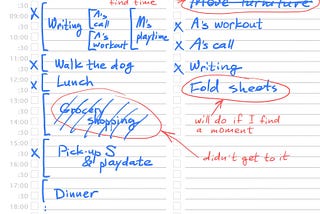 find time
:30
09:00
:30
10:00
:30
11:00
:30
12:00
:30
13:00
:30
14:00
:30
15:00
:30
16:00
:30
17:00
:30
18:00
X Writing
A's call
A's workout
M's playtime
X Walk the dog
X Lunch
Grocery shopping
X Pick-up S
& playdate
Dinner
Move furniture
X A's workout
X A's call
X Writing
Fold sheets
will do if I find
a moment
didn't get to it